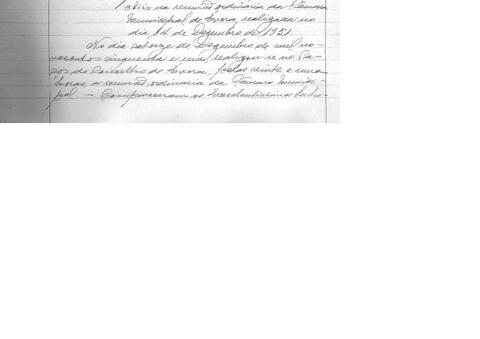 Acta da reunião ordinária da Câmara
Municipal de Evora, realizada no
dia 14 de Dezembro de 1951.
No dia catorze de Dezembro de mil no-
vecentos cinquenta e um, realizou-se nos Pa-
ços do Concelho de Evora, pelas vinte e uma
horas, a reunião ordinaria da Câmara Munici-
pal — Compareceram os Excelentissimos Senho-